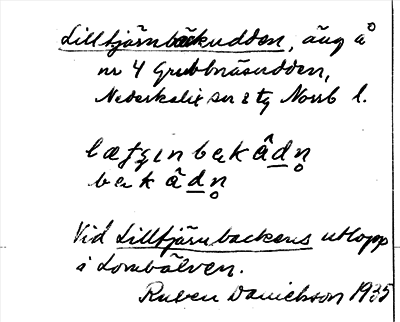 Lilltjärnbäckudden, äng å
nr 4 Grubbnäsudden,
Nederkalix sn o tg Norrb l.
bekådn
Vid Lilltjärnbackens utlopp
i Lombälven.
Ruben Danielsson 1935